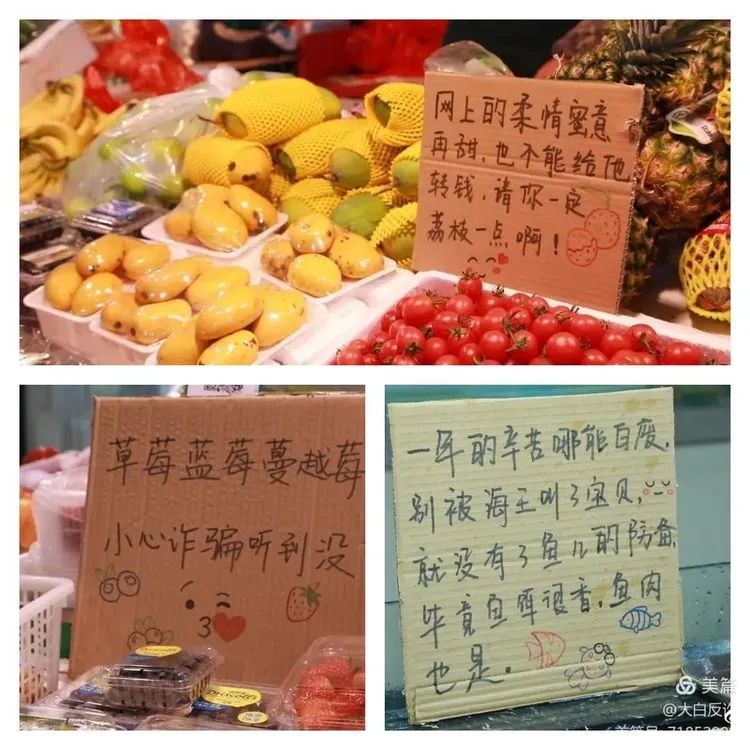 网上的柔情蜜意
再甜,也不能给他
转钱,请你一定
荔枝一点啊!
草莓蓝莓蔓越莓
小心诈骗听到没
Driscoll's
一年的辛苦哪能白废,
别被海王叫了宝贝,
就没有了鱼儿的防备,
毕竟鱼饵很香,鱼肉
也是。
美篇
@大白反